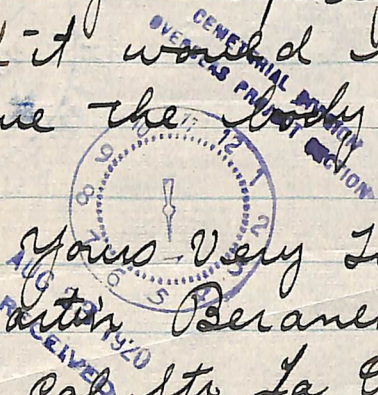 it would
CEMETERIAL DIVISION
OVERSEAS PROJECT SECTION
the body
11 12 1 2 3 4 5 6 7 8 9 10
Yours Very
AUG 1920
RECEIVED
Cal Str. La